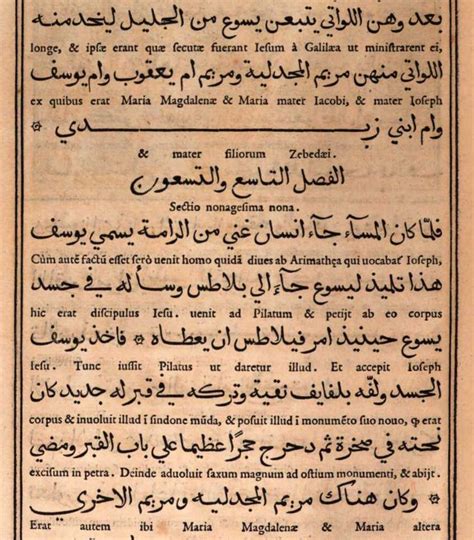 بعد وهن اللواتي يتبعن يسوع من الجليل ليخدمنه
longe, & ipsæ erant quæ secutæ fuerant Iesum à Galilæa ut ministrarent ei,
اللواتي منهن مريم المجدلية ومريم ام يعقوب وام يوسف
ex quibus erat Maria Magdalenæ & Maria mater Iacobi, & mater Ioseph
وام ابني زبدي
& mater filiorum Zebedæi.
الفصل التاسع والتسعون
Sectio nonagesima nona.
فلمّا كان المسآء جآء انسان غني من الرامة يسمي يوسف
Cùm autē factū esset serò uenit homo quidā diues ab Arimathęa qui uocabat Ioseph,
هذا تلميذ ليسوع جآء الي بلاطس وسأله في جسد
hic erat discipulus Iesu. uenit ad Pilatum & petijt ab eo corpus
يسوع حينيذ امر فيلاطس ان يعطاه فاخذ يوسف
Iesu. Tunc iussit Pilatus ut daretur illud. Et accepit Ioseph
الجسد ولفّه بلفايف نقية وتركه في قبر له جديد كان
corpus & inuoluit illud ī sindone mūda, & posuit illud ī monumēto suo nouo, ꝙ erat
نحته في صخرة ثم دحرج حجرًا عظيما علي باب القبر ومضي
excisum in petra. Deinde aduoluit saxum magnum ad ostium monumenti, & abijt.
وكان هناك مريم المجدليه ومريم الاخري
Erat autem ibi Maria Magdalenæ & Maria altera